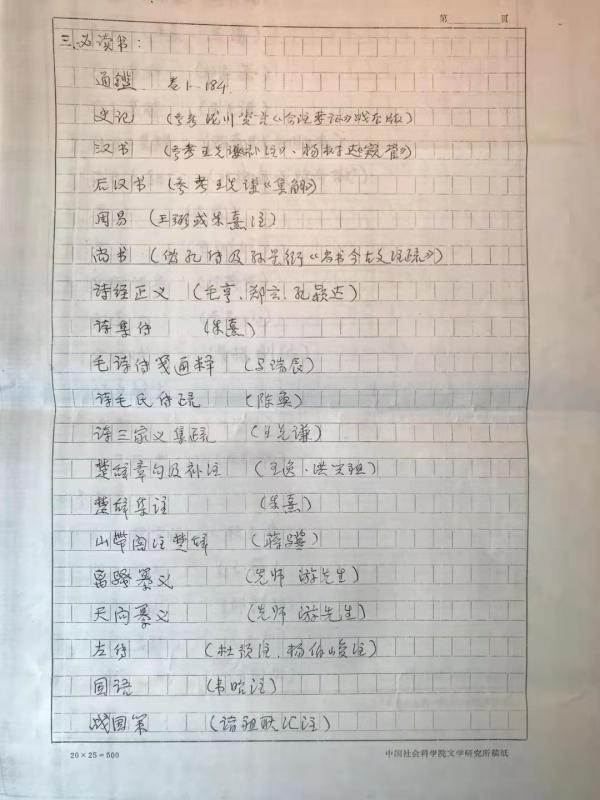 第 頁
三、必读书：
通鑑 卷1-184.
史记 (参考泷川资言《会注考证》战后版)
汉书 (参考王先谦补注》、杨树达《窥管》)
后汉书 (参考王先谦《集解》)
周易 (王弼或朱熹注)
尚书 (伪孔传及孙星衍《尚书今古文注疏》)
诗经正义 (毛亨、郑玄、孔颖达)
诗集传 (朱熹)
毛诗传笺通释 (马瑞辰)
诗毛氏传疏 (陈奂)
诗三家义集疏 (王先谦)
楚辞章句及补注 (王逸、洪兴祖)
楚辞集注 (朱熹)
山带阁注楚辞 (蒋骥)
离骚纂义 (先师 游先生)
天问纂义 (先师 游先生)
左传 (杜预注、杨伯峻注)
国语 (韦昭注)
战国策 (诸祖耿汇注)
20×25=500 中国社会科学院文学研究所稿纸